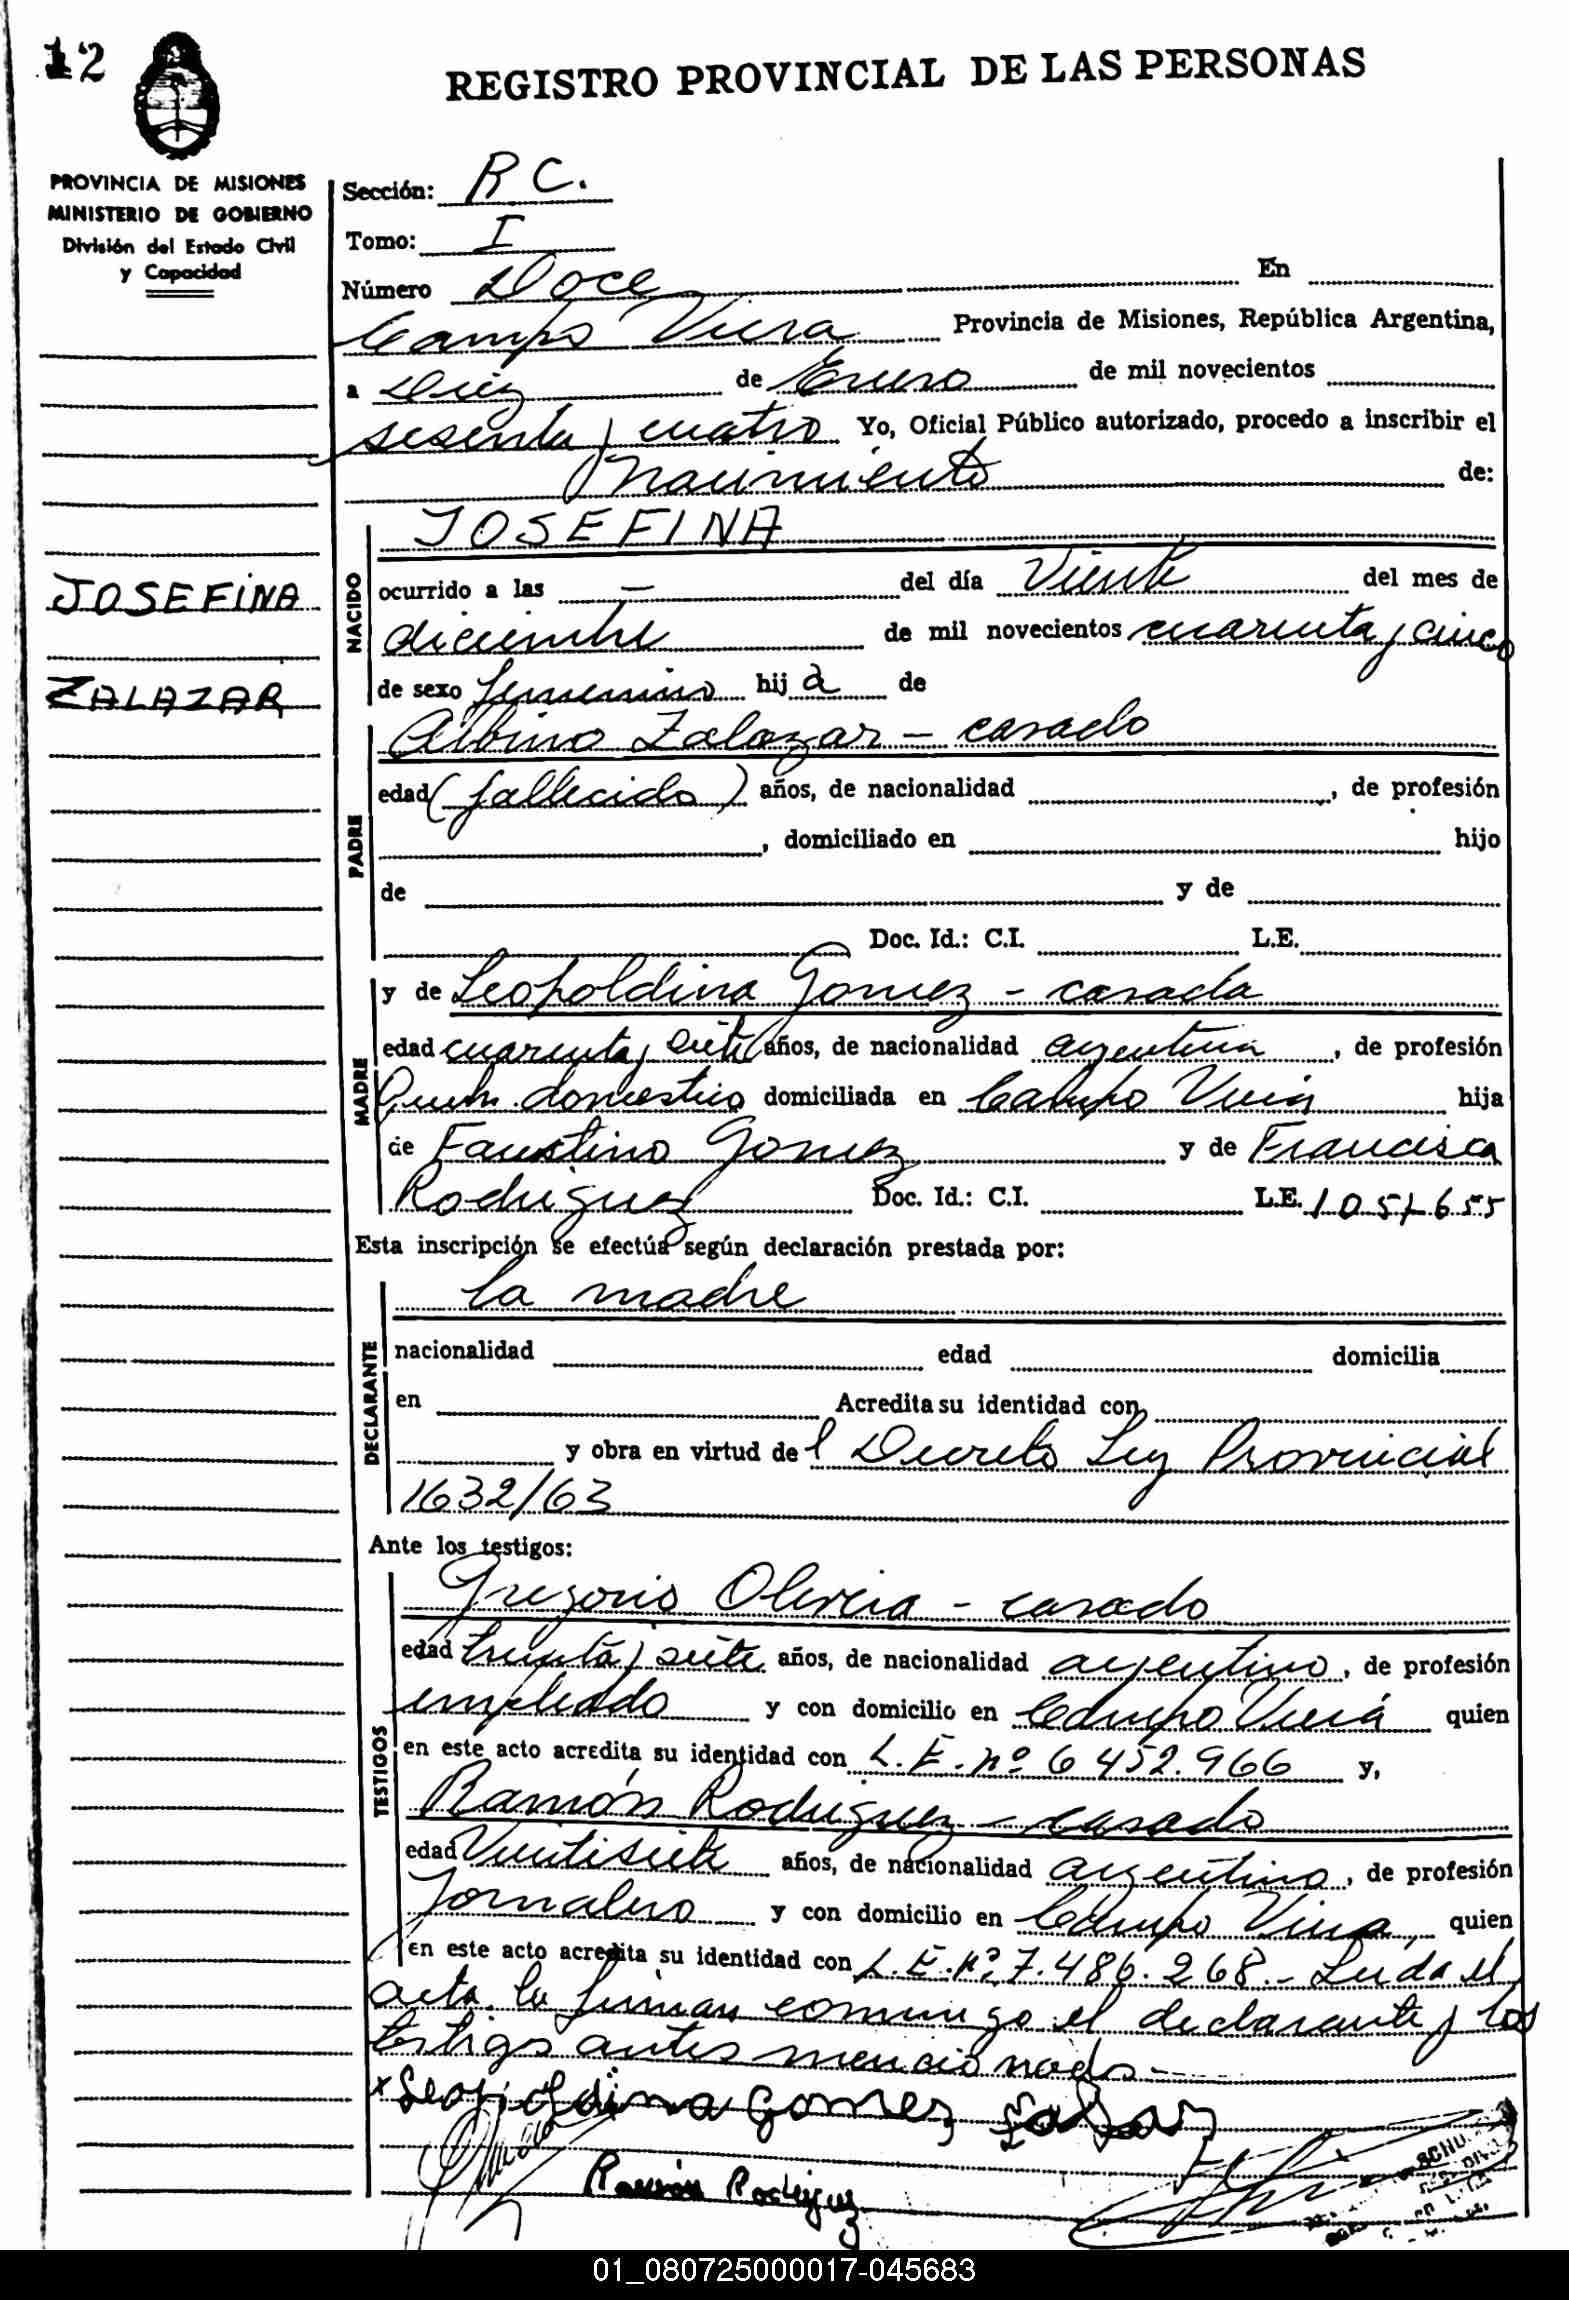 12
REGISTRO PROVINCIAL DE LAS PERSONAS
PROVINCIA DE MISIONES
MINISTERIO DE GOBIERNO
División del Estado Civil
y Capacidad
Sección: R C.
Tomo: I
Número Doce En
Campo Viera Provincia de Misiones, República Argentina,
a Diez de Enero de mil novecientos
sesenta y cuatro Yo, Oficial Público autorizado, procedo a inscribir el
Nacimiento de:
JOSEFINA
JOSEFINA
ZALAZAR
NACIDO
ocurrido a las — del día Viente del mes de
diciembre de mil novecientos cuarenta y cinco
de sexo femenino hij a de
PADRE
Albino Zalazar - casado
edad (fallecido) años, de nacionalidad , de profesión
, domiciliado en hijo
de y de
Doc. Id.: C.I. L.E.
MADRE
y de Leopoldina Gomez - casada
edad cuarenta y siete años, de nacionalidad argentina , de profesión
Queh. domestico domiciliada en Campo Viera hija
de Faustino Gomez y de Francisca
Rodriguez Doc. Id.: C.I. L.E.
Esta inscripción se efectúa según declaración prestada por:
DECLARANTE
la madre
nacionalidad edad domicilia
en Acredita su identidad con
y obra en virtud de l Decreto Ley Provincial
1632/63
Ante los testigos:
TESTIGOS
Gregorio Olivera - casado
edad treinta y siete años, de nacionalidad argentino, de profesión
empleado y con domicilio en Campo Viera quien
en este acto acredita su identidad con L.E. nº 6 452.966 y,
Ramón Rodriguez - casado
edad Veintisiete años, de nacionalidad argentino, de profesión
Jornalero y con domicilio en Campo Viera, quien
en este acto acredita su identidad con L.E. nº 7.486.268.- Leida el
acta, la firman conmigo el declarante y los
testigos antes mencionados-
x Leopoldina Gomez
Ramón Rodriguez
01_080725000017-045683